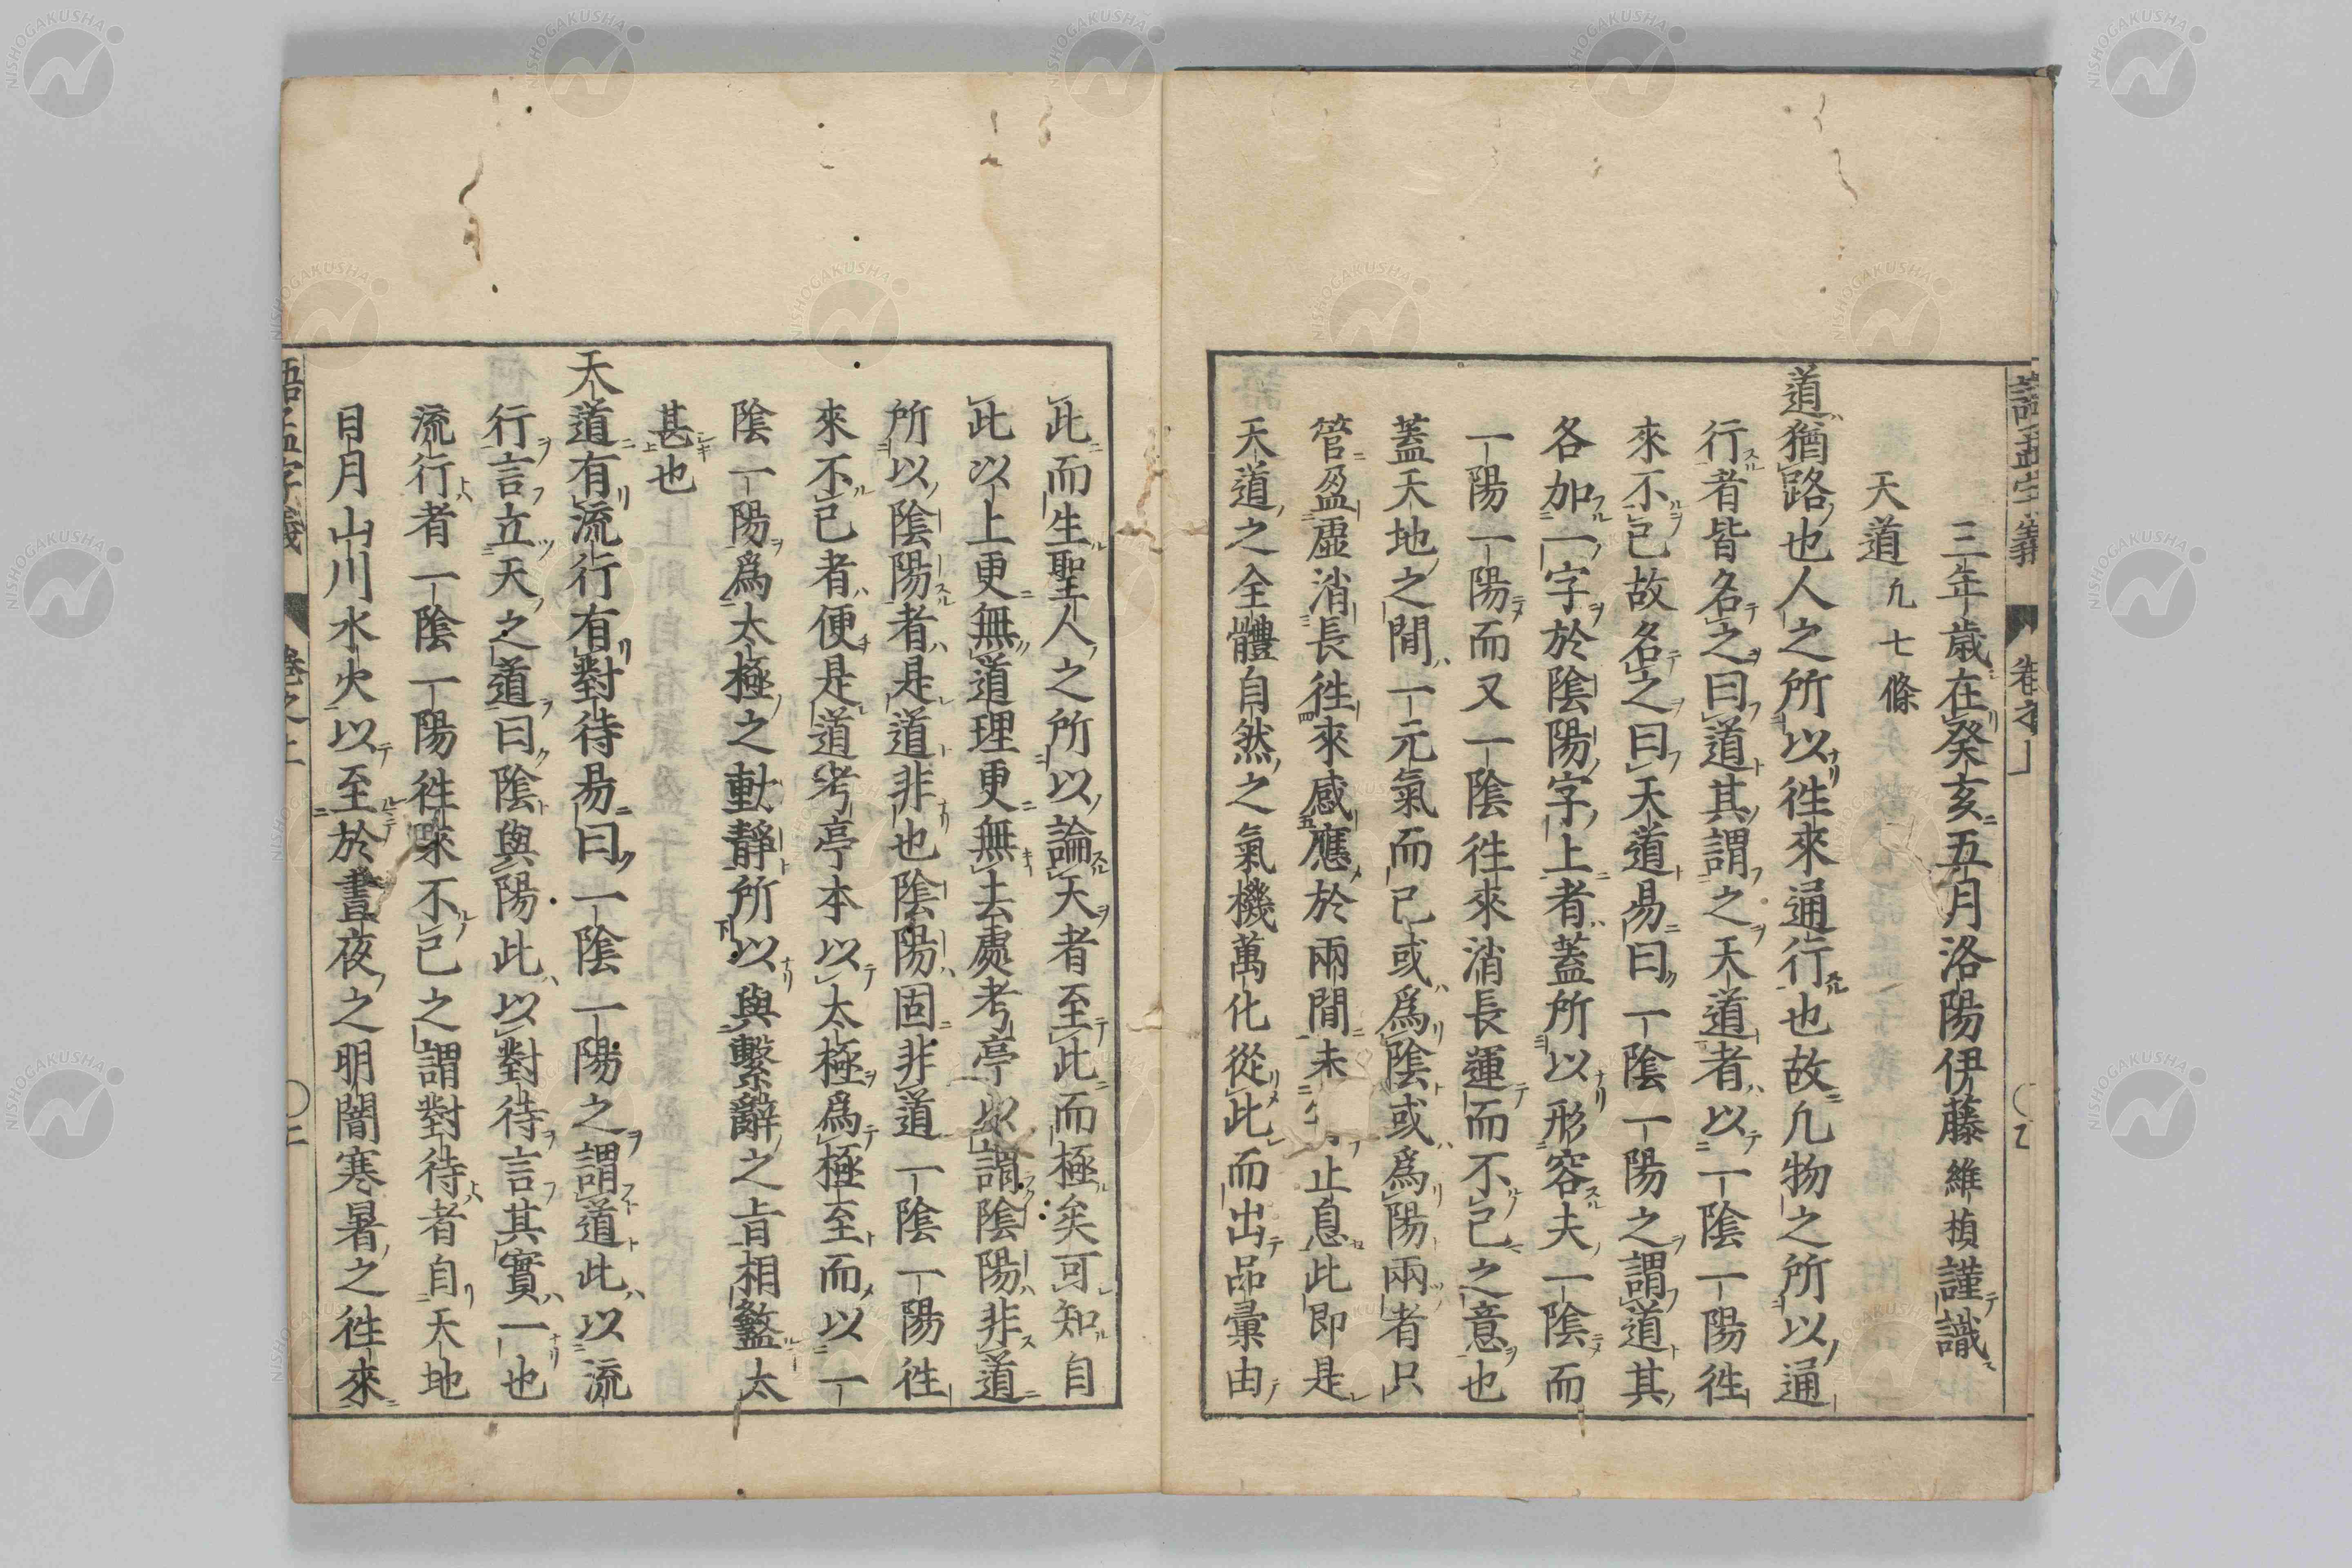 三年歲在癸亥五月洛陽伊藤維楨謹識
天道 凢七條
道猶路也人之所以徃來通行也故凢物之所以通
行者皆名之曰道其謂之天道者以一陰一陽徃
來不已故名之曰天道易曰一陰一陽之謂道其
各加一字於陰陽字上者蓋所以形容夫一陰而
一陽一陽而又一陰徃來消長運而不已之意也
蓋天地之間一元氣而已或爲陰或爲陽兩者只
管盈虛消長徃來感應於兩間未止息此即是
天道之全體自然之氣機萬化從此而出品彙由
此而生聖人之所以論天者至此而極矣可知自
此以上更無道理更無去處考亭以謂陰陽非道
所以陰陽者是道非也陰陽固非道一陰一陽徃
來不已者便是道考亭本以太極爲極至而以一
陰一陽爲太極之動靜所以與繫辭之旨相盭太
甚也
天道有流行有對待易曰一陰一陽之謂道此以流
行言立天之道曰陰與陽此以對待言其實一也
流行者一陰一陽徃來不已之謂對待者自天地
日月山川水火以至於晝夜之明闇寒暑之徃來
語孟字義 卷之上 〇二
NISHOGAKUSHA